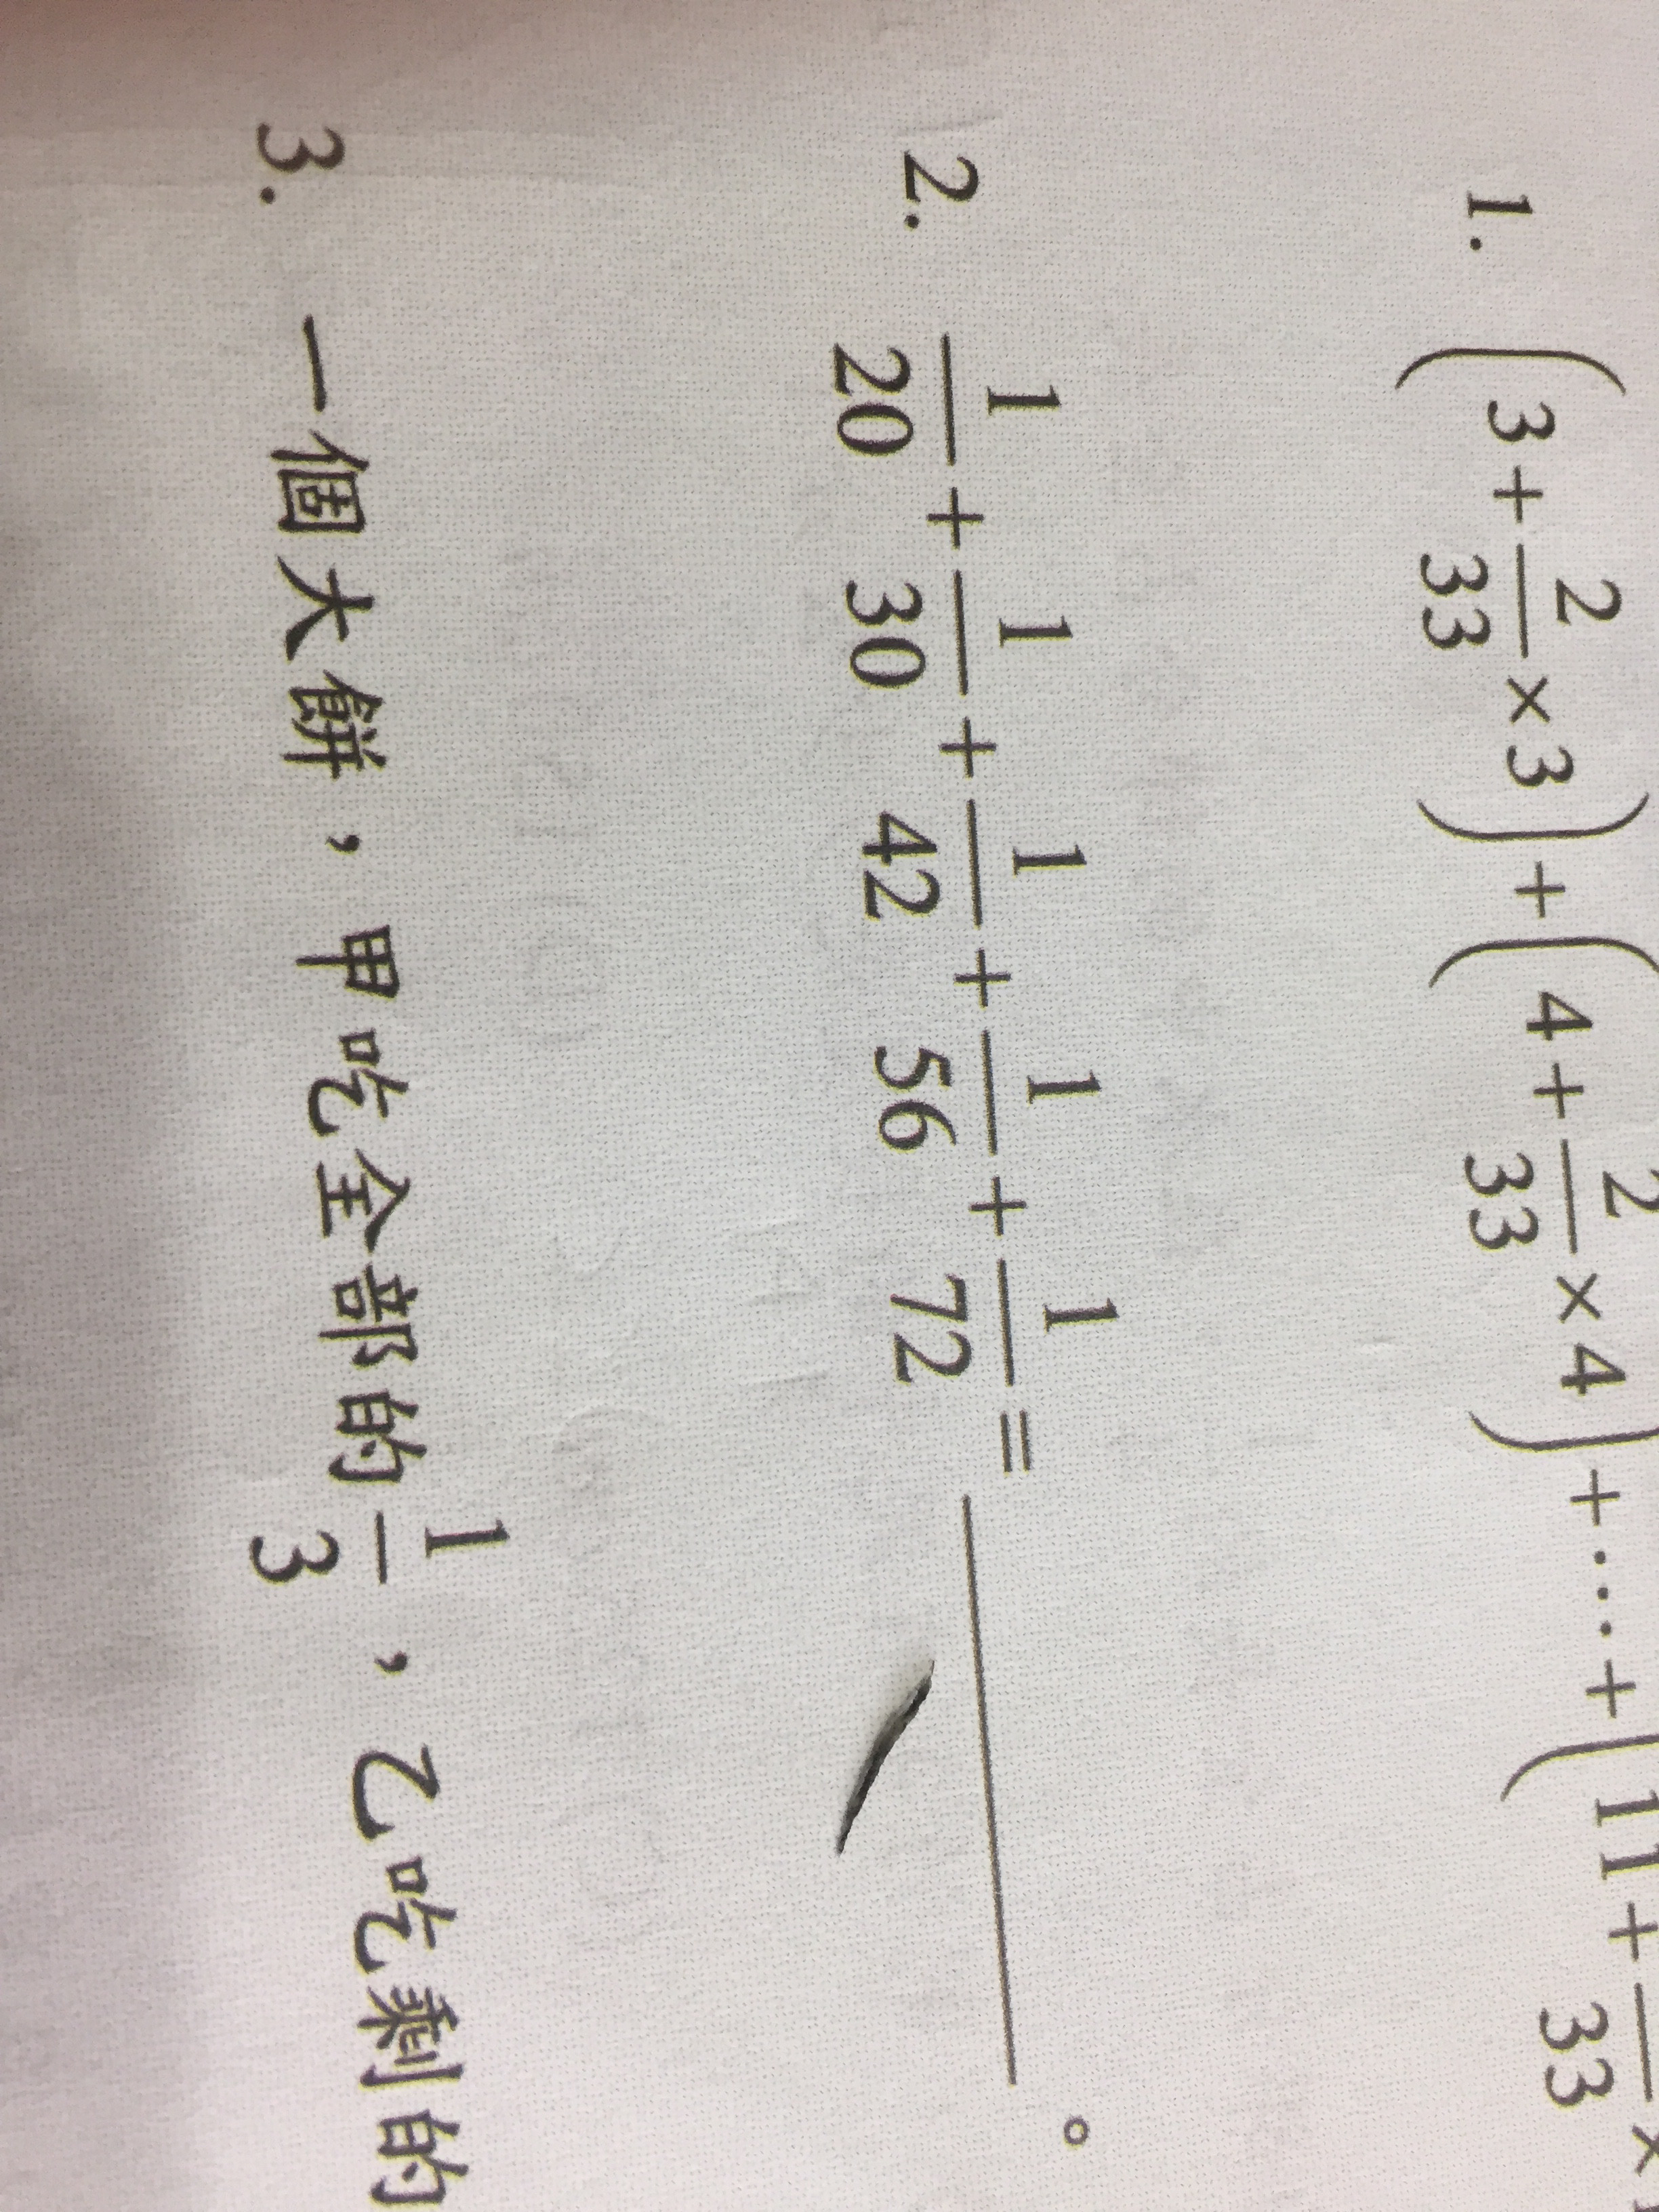 1. (3+2/33×3)+(4+2/33×4)+⋯+(11+ /33×
2. 1/20+1/30+1/42+1/56+1/72=______。
3. 一個大餅，甲吃全部的1/3，乙吃剩的